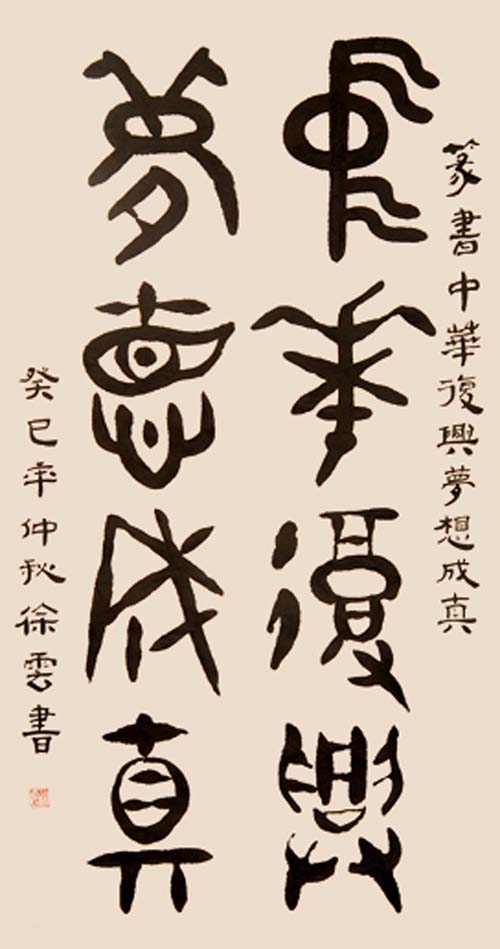 篆書中華復興夢想成真
中華復興
夢想成真
癸巳年仲秋徐雲書